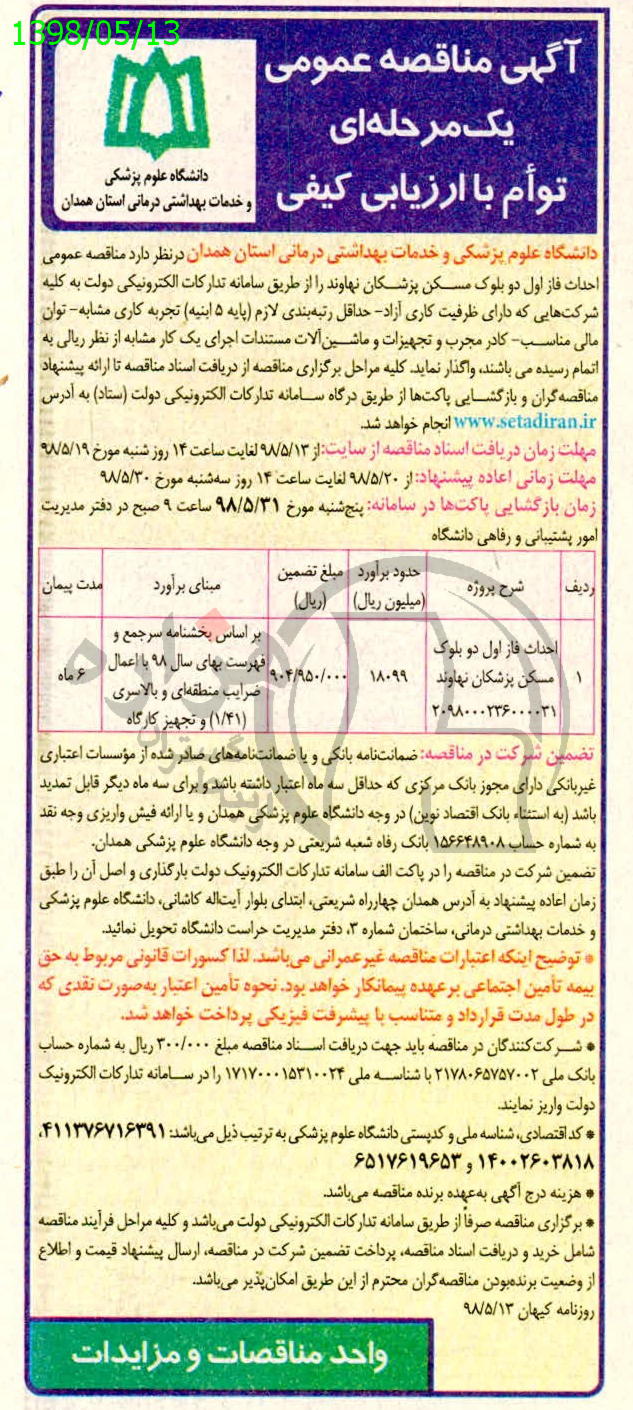 1398/05/13
آگهی مناقصه عمومی
یک‌مرحله‌ای
توأم با ارزیابی کیفی
دانشگاه علوم پزشکی
و خدمات بهداشتی درمانی استان همدان
دانشگاه علوم پزشکی و خدمات بهداشتی درمانی استان همدان درنظر دارد مناقصه عمومی
احداث فاز اول دو بلوک مسکن پزشکان نهاوند را از طریق سامانه تدارکات الکترونیکی دولت به کلیه
شرکت‌هایی که دارای ظرفیت کاری آزاد- حداقل رتبه‌بندی لازم (پایه ۵ ابنیه) تجربه کاری مشابه- توان
مالی مناسب- کادر مجرب و تجهیزات و ماشین‌آلات مستندات اجرای یک کار مشابه از نظر ریالی به
اتمام رسیده می باشند، واگذار نماید. کلیه مراحل برگزاری مناقصه از دریافت اسناد مناقصه تا ارائه پیشنهاد
مناقصه‌گران و بازگشایی پاکت‌ها از طریق درگاه سامانه تدارکات الکترونیکی دولت (ستاد) به آدرس
www.setadiran.ir انجام خواهد شد.
مهلت زمان دریافت اسناد مناقصه از سایت: از ۹۸/۵/۱۳ لغایت ساعت ۱۴ روز شنبه مورخ ۹۸/۵/۱۹
مهلت زمانی اعاده پیشنهاد: از ۹۸/۵/۲۰ لغایت ساعت ۱۴ روز سه‌شنبه مورخ ۹۸/۵/۳۰
زمان بازگشایی پاکت‌ها در سامانه: پنج‌شنبه مورخ ۹۸/۵/۳۱ ساعت ۹ صبح در دفتر مدیریت
امور پشتیبانی و رفاهی دانشگاه
ردیف
شرح پروژه
حدود برآورد
(میلیون ریال)
مبلغ تضمین
(ریال)
مبنای برآورد
مدت پیمان
۱
احداث فاز اول دو بلوک
مسکن پزشکان نهاوند
۲۰۹۸۰۰۰۲۳۶۰۰۰۰۳۱
۱۸۰۹۹
۹۰۴/۹۵۰/۰۰۰
بر اساس بخشنامه سرجمع و
فهرست بهای سال ۹۸ با اعمال
ضرایب منطقه‌ای و بالاسری
(۱/۴۱) و تجهیز کارگاه
۶ ماه
تضمین شرکت در مناقصه: ضمانت‌نامه بانکی و یا ضمانت‌نامه‌های صادر شده از مؤسسات اعتباری
غیربانکی دارای مجوز بانک مرکزی که حداقل سه ماه اعتبار داشته باشد و برای سه ماه دیگر قابل تمدید
باشد (به استثناء بانک اقتصاد نوین) در وجه دانشگاه علوم پزشکی همدان و یا ارائه فیش واریزی وجه نقد
به شماره حساب ۱۵۶۶۴۸۹۰۸ بانک رفاه شعبه شریعتی در وجه دانشگاه علوم پزشکی همدان.
تضمین شرکت در مناقصه را در پاکت الف سامانه تدارکات الکترونیک دولت بارگذاری و اصل آن را طبق
زمان اعاده پیشنهاد به آدرس همدان چهارراه شریعتی، ابتدای بلوار آیت‌اله کاشانی، دانشگاه علوم پزشکی
و خدمات بهداشتی درمانی، ساختمان شماره ۳، دفتر مدیریت حراست دانشگاه تحویل نمائید.
* توضیح اینکه اعتبارات مناقصه غیرعمرانی می‌باشد. لذا کسورات قانونی مربوط به حق
بیمه تأمین اجتماعی برعهده پیمانکار خواهد بود. نحوه تأمین اعتبار به‌صورت نقدی که
در طول مدت قرارداد و متناسب با پیشرفت فیزیکی پرداخت خواهد شد.
* شرکت‌کنندگان در مناقصه باید جهت دریافت اسناد مناقصه مبلغ ۳۰۰/۰۰۰ ریال به شماره حساب
بانک ملی ۲۱۷۸۰۶۵۷۵۷۰۰۲ با شناسه ملی ۱۷۱۷۰۰۰۱۵۳۱۰۰۲۴ را در سامانه تدارکات الکترونیک
دولت واریز نمایند.
* کداقتصادی، شناسه ملی و کدپستی دانشگاه علوم پزشکی به ترتیب ذیل می‌باشد: ۴۱۱۳۷۶۷۱۶۳۹۱،
۱۴۰۰۲۶۰۳۸۱۸ و ۶۵۱۷۶۱۹۶۵۳
* هزینه درج آگهی به‌عهده برنده مناقصه می‌باشد.
* برگزاری مناقصه صرفاً از طریق سامانه تدارکات الکترونیکی دولت می‌باشد و کلیه مراحل فرآیند مناقصه
شامل خرید و دریافت اسناد مناقصه، پرداخت تضمین شرکت در مناقصه، ارسال پیشنهاد قیمت و اطلاع
از وضعیت برنده‌بودن مناقصه‌گران محترم از این طریق امکان‌پذیر می‌باشد.
روزنامه کیهان ۹۸/۵/۱۳
واحد مناقصات و مزایدات